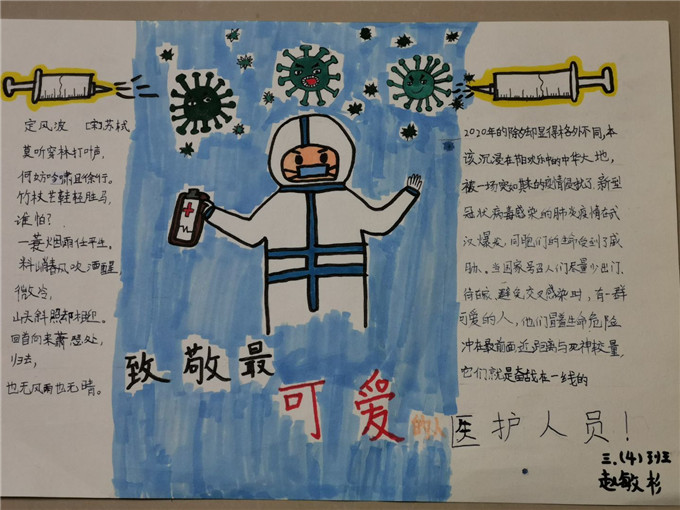 定风波 【宋】苏轼
莫听穿林打叶声,
何妨吟啸且徐行。
竹杖芒鞋轻胜马,
谁怕?
一蓑烟雨任平生。
料峭春风吹酒醒,
微冷,
山头斜照却相迎。
回首向来萧瑟处,
归去,
也无风雨也无晴。
2020年的除夕却显得格外不同,本
该沉浸在节日欢乐中的中华大地,
被一场突如其来的疫情侵扰了,新型
冠状病毒感染的肺炎疫情在武
汉爆发,同胞们的生命受到了威
胁。当国家号召人们尽量少出门、
待在家,避免交叉感染时,有一群
可爱的人,他们冒着生命危险
冲在最前面,近距离与死神较量,
它们就是奋战在一线的
致敬最
可爱的人
医护人员!
三.(4)班
赵敏杉